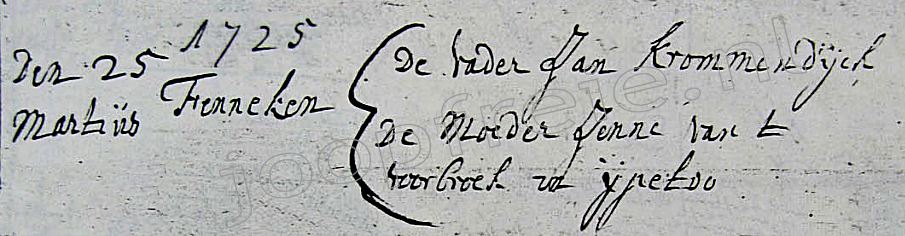 1725
Den 25
Martiüs
Fenneken
De Vader Jan Krommendÿck
De Moeder Jenne van t
voorbroek ut ÿpekoo
joopfreie.nl